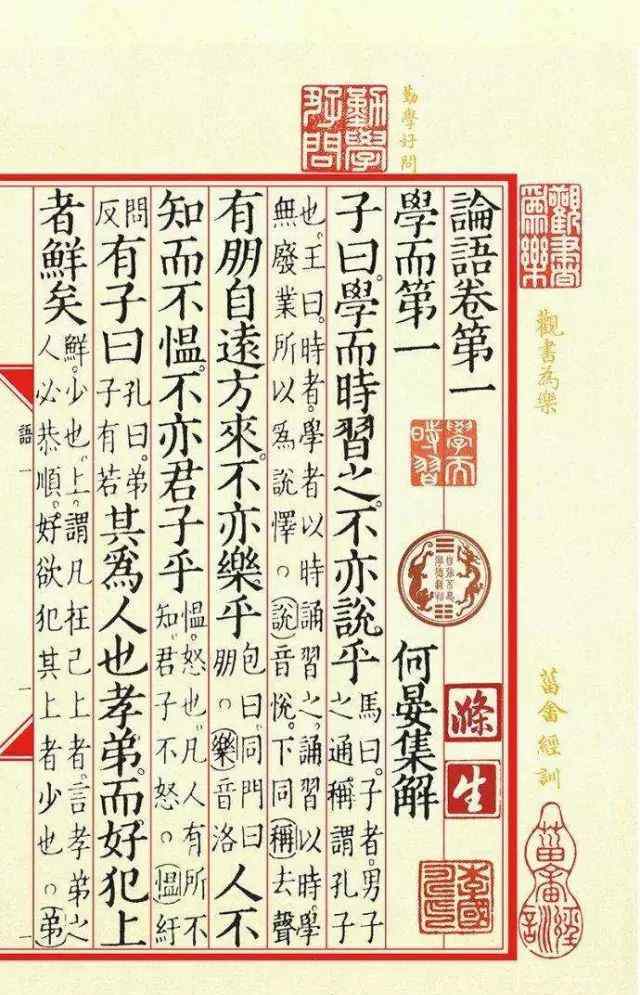 勤學好問
勤學好問
觀書爲樂
觀書為樂
菑畬經訓
菑畬經訓
論語卷第一
學而時習
滌生
學而第一 何晏集解
子曰。學而時習之。不亦說乎
馬曰。子者。男子
之通稱。謂孔子
也。王曰。時者。學者以時誦習之。誦習以時。學
無廢業。所以爲說懌。○說音悅。下同。稱去聲
有朋自遠方來。不亦樂乎
包曰。同門曰
朋。○樂音洛
人不
知而不慍。不亦君子乎
慍。怒也。凡人有所不
知。君子不怒。○慍紆
問
反
有子曰
孔曰。弟
子有若
其爲人也孝弟。而好犯上
者鮮矣
鮮。少也。上。謂凡在己上者。言孝弟之
人必恭順。好欲犯其上者少也。○弟
語一
一